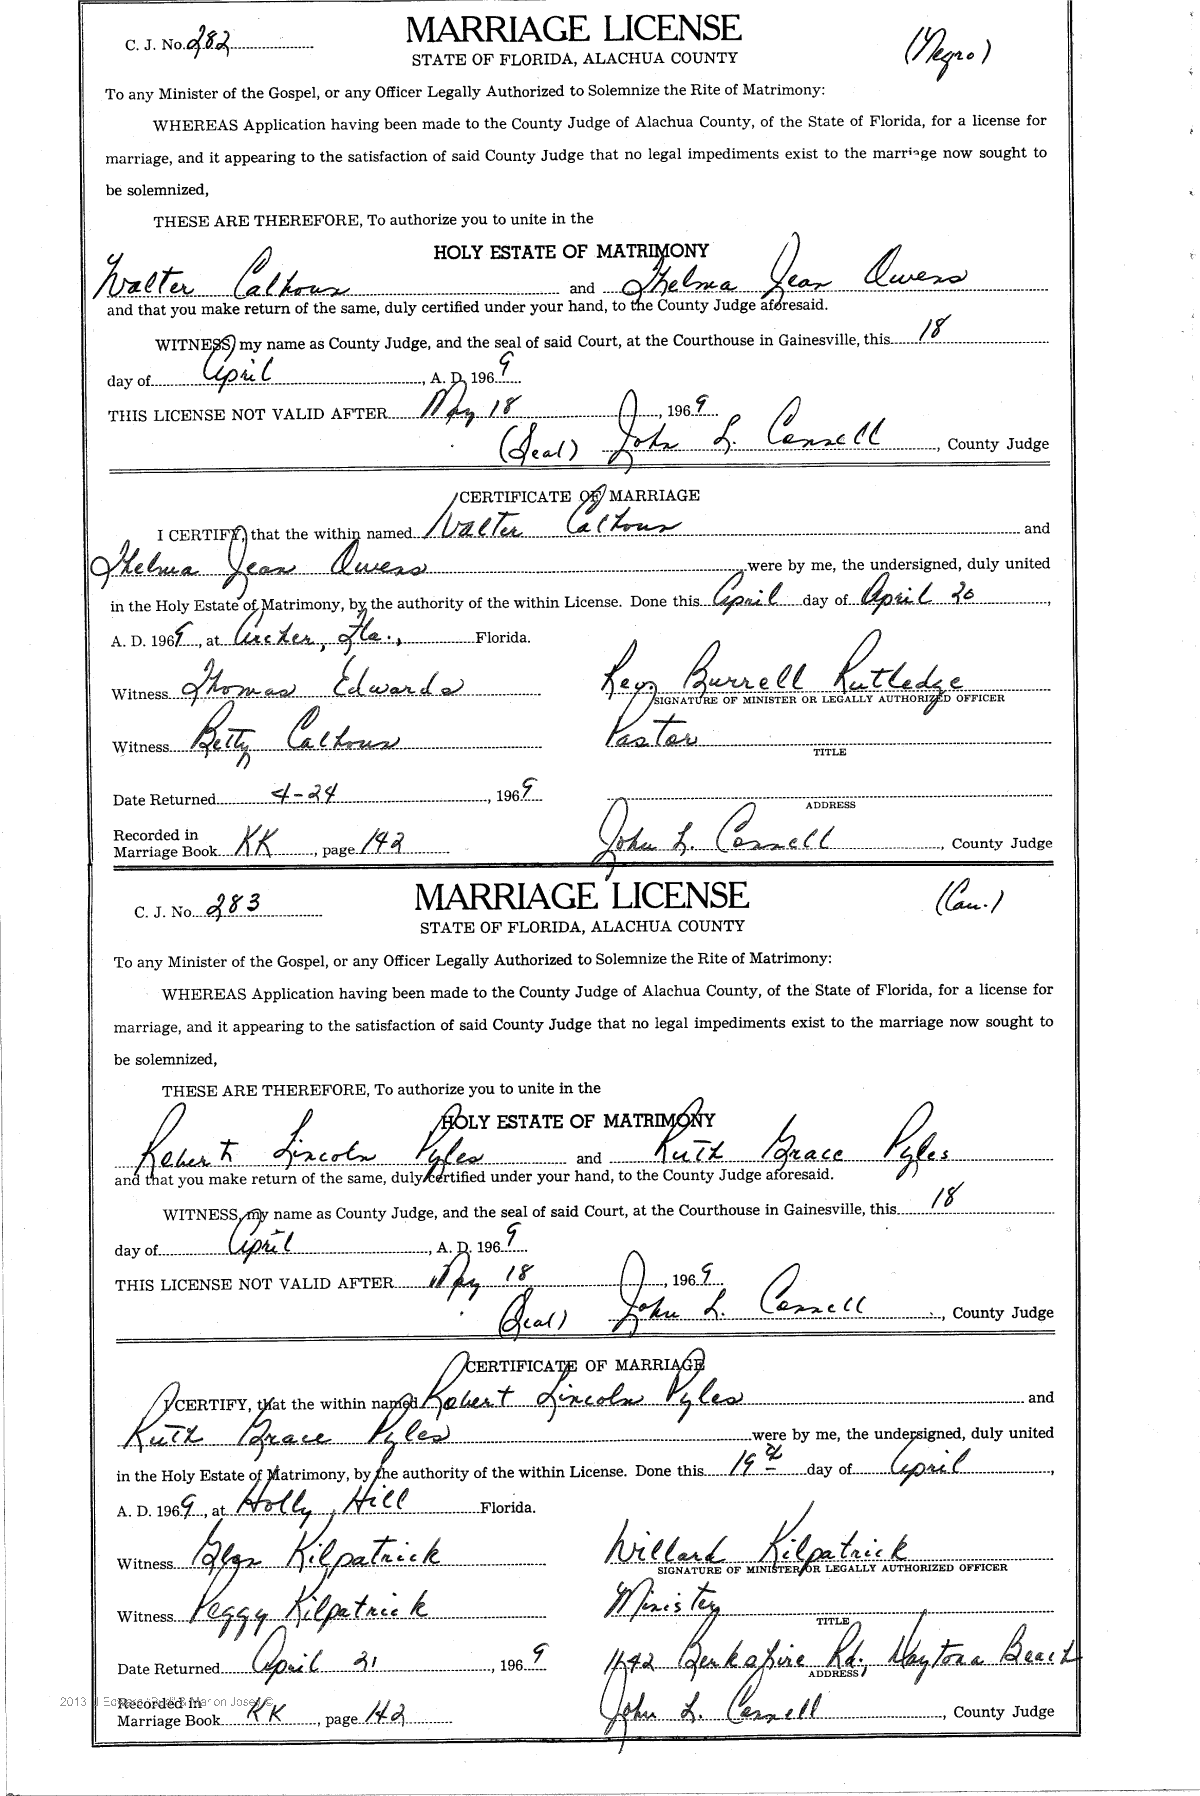 C. J. No. 282 MARRIAGE LICENSE (Negro)
STATE OF FLORIDA, ALACHUA COUNTY
To any Minister of the Gospel, or any Officer Legally Authorized to Solemnize the Rite of Matrimony:
WHEREAS Application having been made to the County Judge of Alachua County, of the State of Florida, for a license for
marriage, and it appearing to the satisfaction of said County Judge that no legal impediments exist to the marriage now sought to
be solemnized,
THESE ARE THEREFORE, To authorize you to unite in the
HOLY ESTATE OF MATRIMONY
Walter Calhoun and Thelma Jean Owens
and that you make return of the same, duly certified under your hand, to the County Judge aforesaid.
WITNESS, my name as County Judge, and the seal of said Court, at the Courthouse in Gainesville, this 18
day of April, A. D. 1969
THIS LICENSE NOT VALID AFTER May 18, 1969
(Seal) John L. Connell, County Judge
CERTIFICATE OF MARRIAGE
I CERTIFY, that the within named Walter Calhoun and
Thelma Jean Owens were by me, the undersigned, duly united
in the Holy Estate of Matrimony, by the authority of the within License. Done this April day of April 20,
A. D. 1969, at Archer, Fla., Florida.
Witness Thomas Edwards Rev Burrell Rutledge
SIGNATURE OF MINISTER OR LEGALLY AUTHORIZED OFFICER
Witness Betty Calhoun Pastor
TITLE
Date Returned 4-24, 1969
ADDRESS
Recorded in
Marriage Book KK, page 142 John L. Connell, County Judge
C. J. No. 283 MARRIAGE LICENSE (Cau.)
STATE OF FLORIDA, ALACHUA COUNTY
To any Minister of the Gospel, or any Officer Legally Authorized to Solemnize the Rite of Matrimony:
WHEREAS Application having been made to the County Judge of Alachua County, of the State of Florida, for a license for
marriage, and it appearing to the satisfaction of said County Judge that no legal impediments exist to the marriage now sought to
be solemnized,
THESE ARE THEREFORE, To authorize you to unite in the
HOLY ESTATE OF MATRIMONY
Robert Lincoln Pyles and Ruth Grace Pyles
and that you make return of the same, duly certified under your hand, to the County Judge aforesaid.
WITNESS, my name as County Judge, and the seal of said Court, at the Courthouse in Gainesville, this 18
day of April, A. D. 1969
THIS LICENSE NOT VALID AFTER May 18, 1969
(Seal) John L. Connell, County Judge
CERTIFICATE OF MARRIAGE
I CERTIFY, that the within named Robert Lincoln Pyles and
Ruth Grace Pyles were by me, the undersigned, duly united
in the Holy Estate of Matrimony, by the authority of the within License. Done this 19th day of April,
A. D. 1969, at Holly Hill Florida.
Witness Glyn Kilpatrick Willard Kilpatrick
SIGNATURE OF MINISTER OR LEGALLY AUTHORIZED OFFICER
Witness Peggy Kilpatrick Minister
TITLE
Date Returned April 21, 1969 1642 Berkshire Rd., Daytona Beach
ADDRESS
2013
Recorded in
Marriage Book KK, page 142 John L. Connell, County Judge